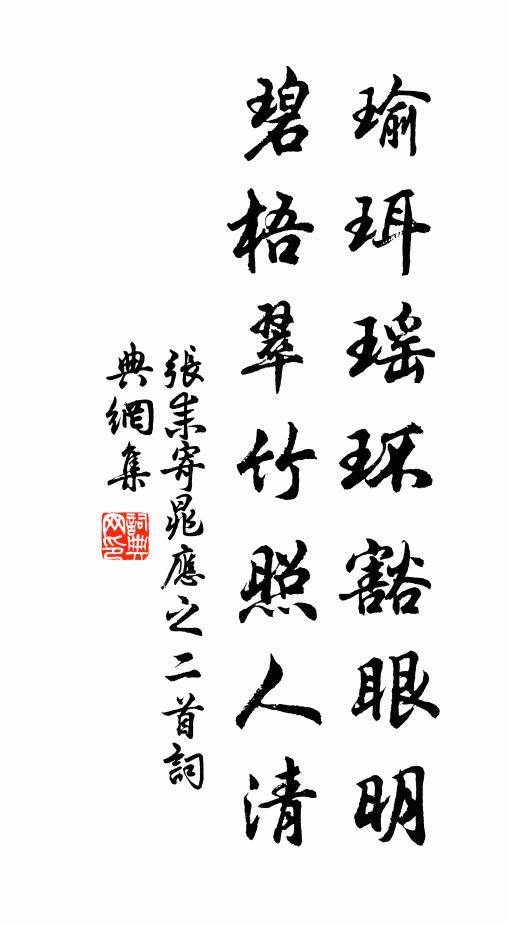 瑜珥瑶环豁眼明
碧梧翠竹照人清
張耒寄晁應之二首詞
典網集
詞典
网印